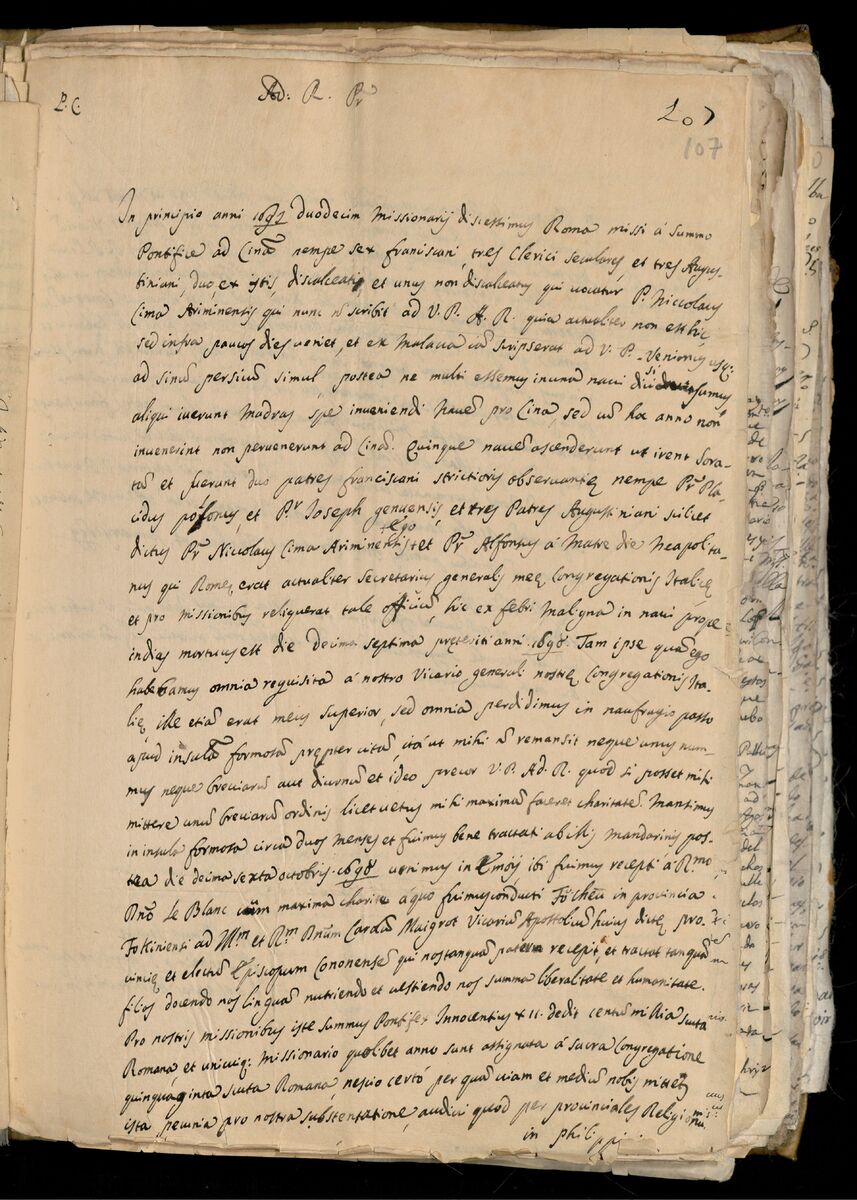 P. C.
Ad: R. Pr
107
107
In principio anni 1697 duodecim Missionarij discessimus Roma missi á summo
Pontifice ad Cinã nempe sex franciscani, tres Clerici seculares, et tres Augus-
tiniani, duo ex istis, discalceatis, et unus non discalceatus qui uocatur P. Niccolaus
Cima Ariminensis qui nunc nõ scribit ad V. P. A. R. quia actualiter non est hic
sed infra paucos dies ueniet, et ex Malaca iã scripserat ad V. P. Venimus usq:
ad sinũ persicũ simul, postea ne multi essemus in una naui diuisi sumus
aliqui iuerunt Madras spe inueniendi Nauẽ pro Cina, sed hoc anno non
inuenerint non peruenerunt ad Cinã. Quinque nauẽ ascenderunt ut irent Sora-
tã et fuerunt duo patres franciscani strictioris obseruantię nempe Pr. Pla-
cidus et Pr Ioseph genuensis, et tres Patres Augustiniani scilicet
dictus Pr. Niccolaus Cima Ariminensis + et Pr. Alfonsus á Matre die Neapolita-
+ Ego
nus qui Romę, erat actualiter secretarius generalis meę Congregationis Italicę
et pro missionibus reliquerat tale officiũ, hic ex febri Maligna in naui prope
indias mortuus est die decima septima pręteriti anni 1698. Tam ipse quã ego
habebamus omnia requisita á nostro Vicario generali nostrę Congregationis Ita-
lię, ille etiã erat meus superior, sed omnia perdidimus in naufragio passo
apud insulã formosã prępter uitã, ità ut mihi nõ remansit neque unus num-
mus neque breuiariũ aut diurnũ et ideo precor V. P. Ad. R. quod si posset mihi
mittere unũ breuiariũ ordinis licet uetus mihi maximã faceret charitatẽ. Mansimus
in insula formosa circa duos menses et fuimus bene tractati ab illis Mandarinis pos-
tea die decima sexta octobris 1698 uenimus in Emoij ibi fuimus recepti á Rmo
Dño Le Blanc cum maxima charitate á quo fuimus conducti Fócheũ in prouincia
Fokiniensi ad Illm et Rm Dnũm Carolũ Maigrot Vicariũ Apostolicũ huius dictę pro-
uincię et electũ Episcopum Cononensẽ qui nos tanquã pater recepit, et tractat tanquã
filios docendo nos linguã nutriendo et uestiendo nos summa liberalitate et humanitate.
Pro nostris missionibus iste summus Pontifex Innocentius XII. dedit centũ millia scuta
Romana, et unicuiq: Missionario quolibet anno sunt assignata á sacra Congregatione
quinquaginta scuta Romana, nescio certó per quã uiam et mediũ nobis mittet
ista pecunia pro nostra substentatione, audiui quod per prouinciales Religionũ
in philippi